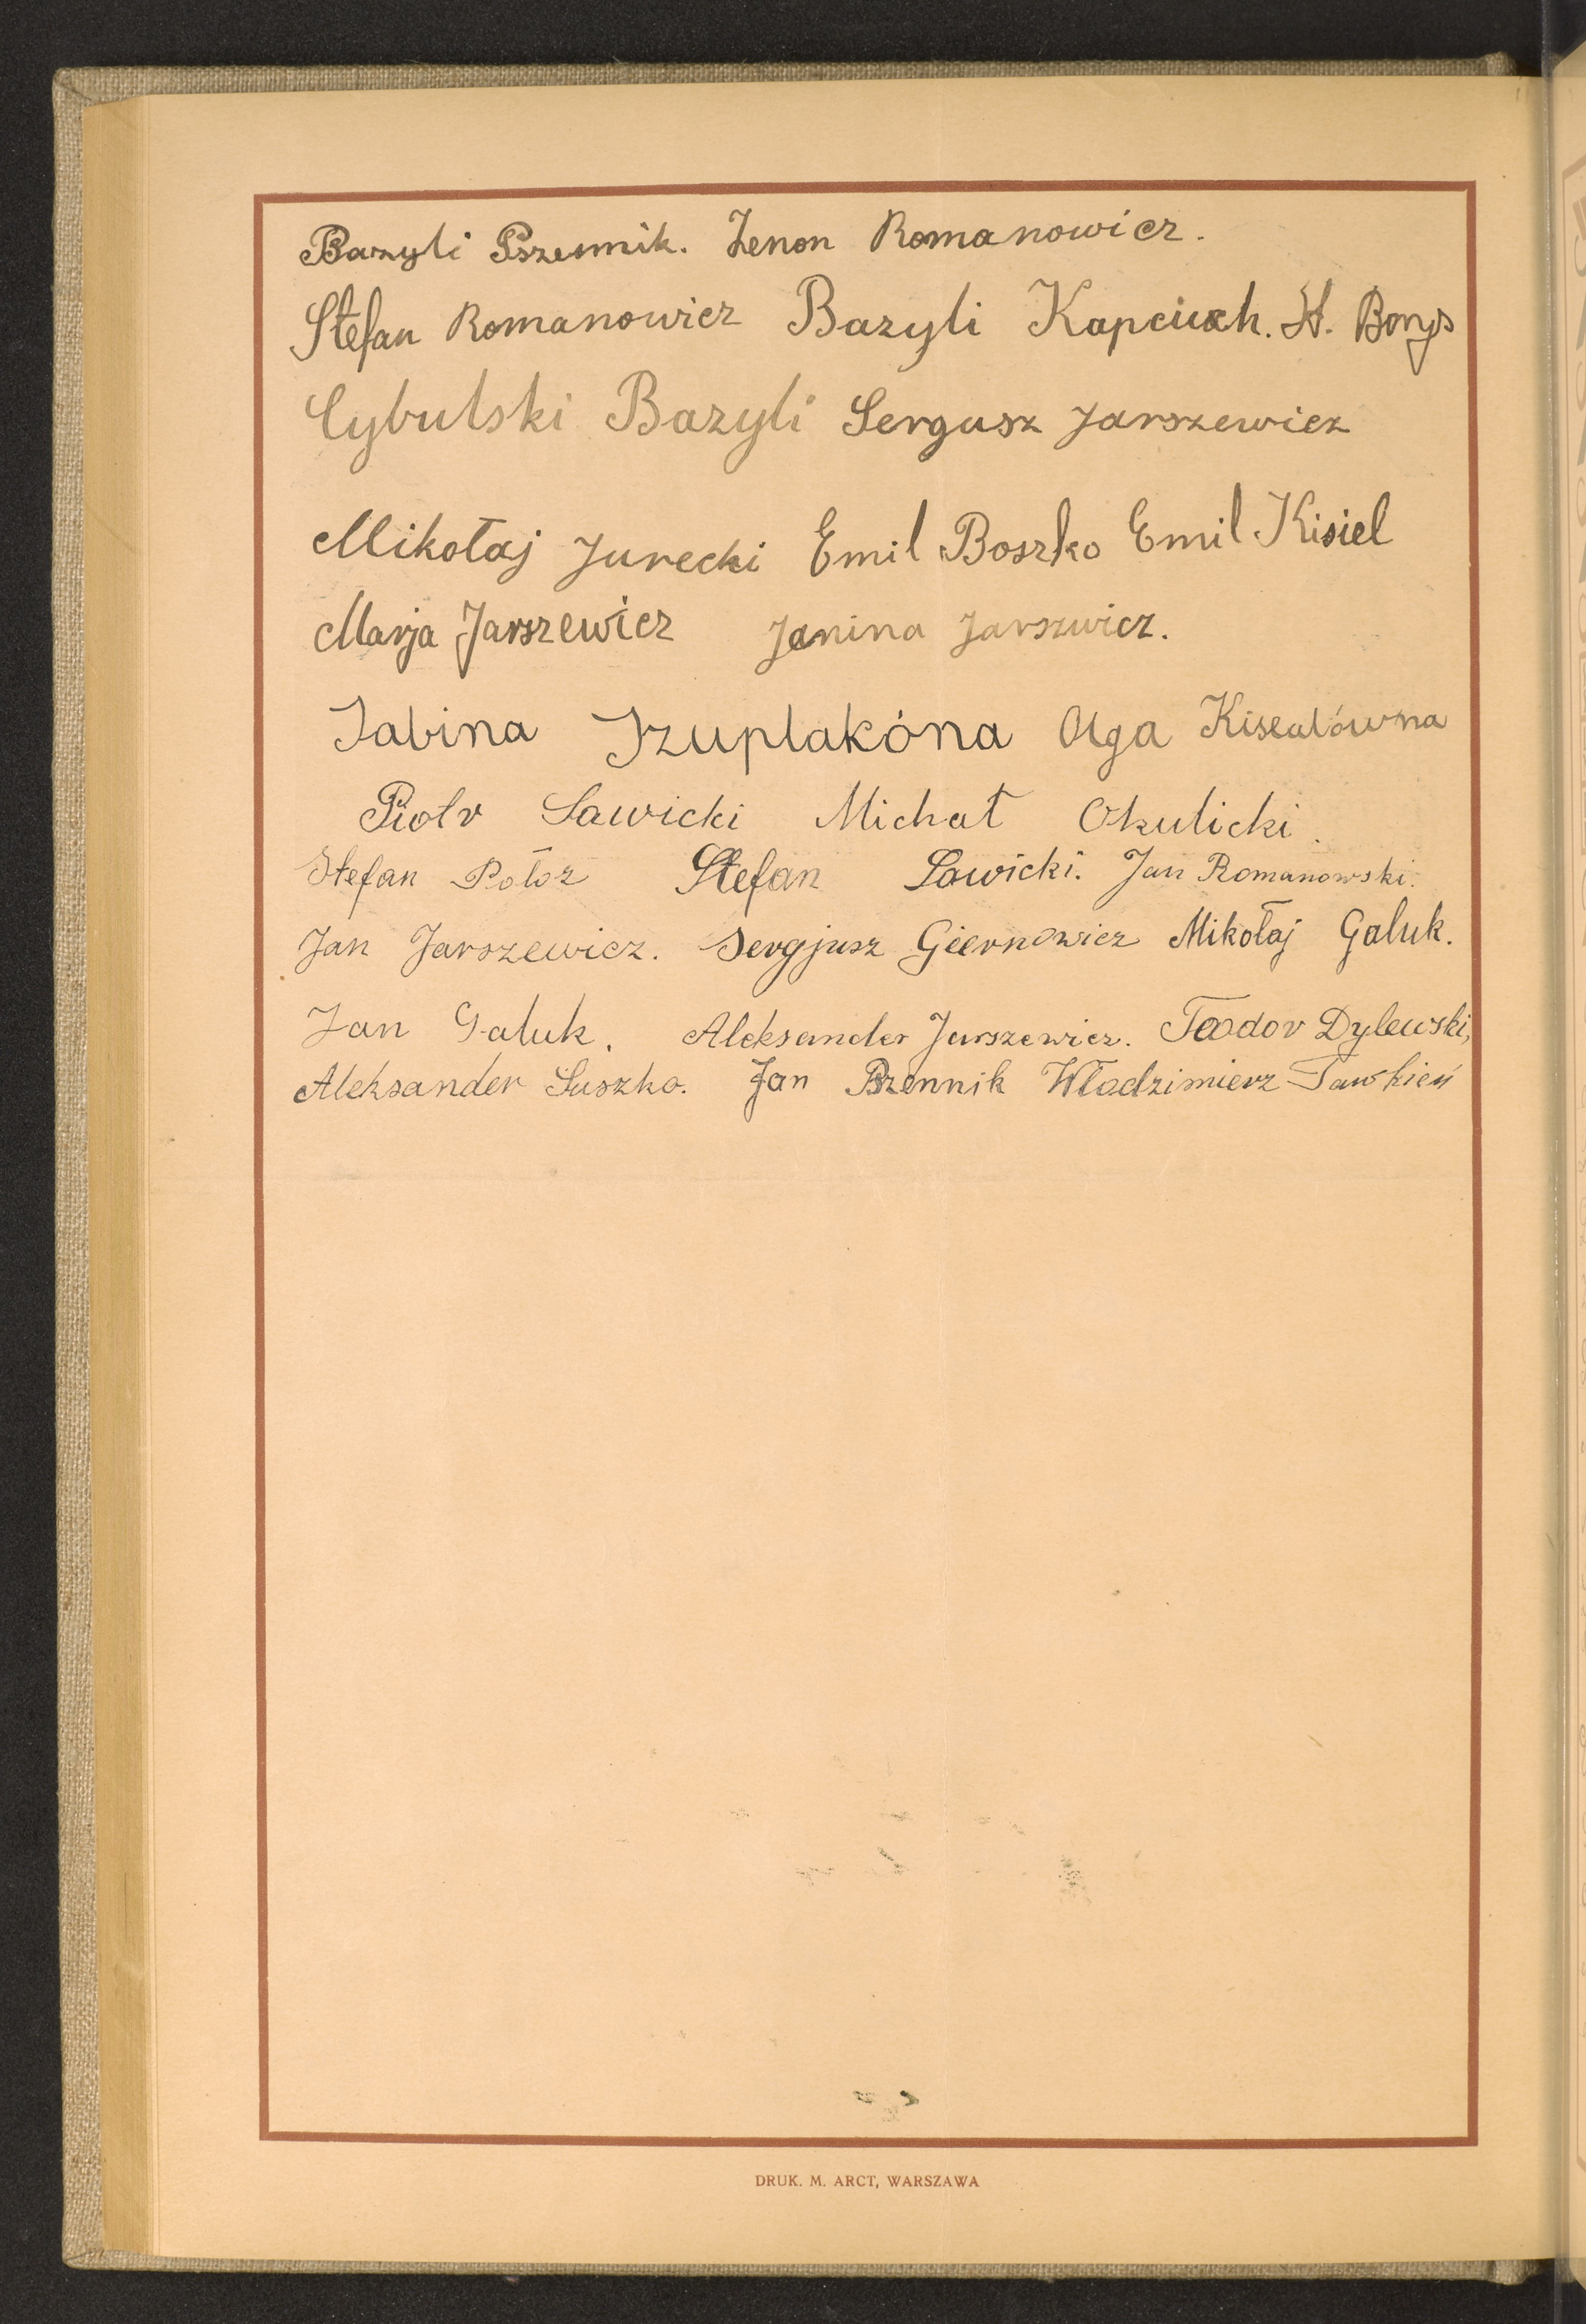 Bazyli Pszennik. Zenon Romanowicz.
Stefan Romanowicz Bazyli Kapciuch. H. Borys
Cybulski Bazyli Sergusz Jarszewicz
Mikołaj Jurecki Emil Boszko Emil Kisiel
Marja Jarszewicz Janina Jarszwicz.
Sabina Szuplakóna Olga Kisealówna
Piotr Sawicki Michał Okulicki.
Stefan Połoz Stefan Sawicki. Jan Romanowski.
Jan Jarszewicz. Sergjusz Giernowicz Mikołaj Galuk.
Jan Galuk. Aleksander Jarszewicz. Teodor Dylewski,
Aleksander Suszko. Jan Pszennik Włodzimierz
DRUK. M. ARCT, WARSZAWA